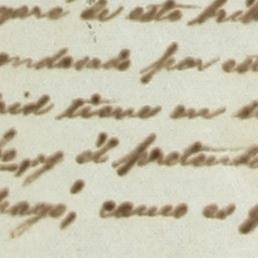 garé de este trib
ondenado por est
rid tiene en d
y él pretend
hago; como es q